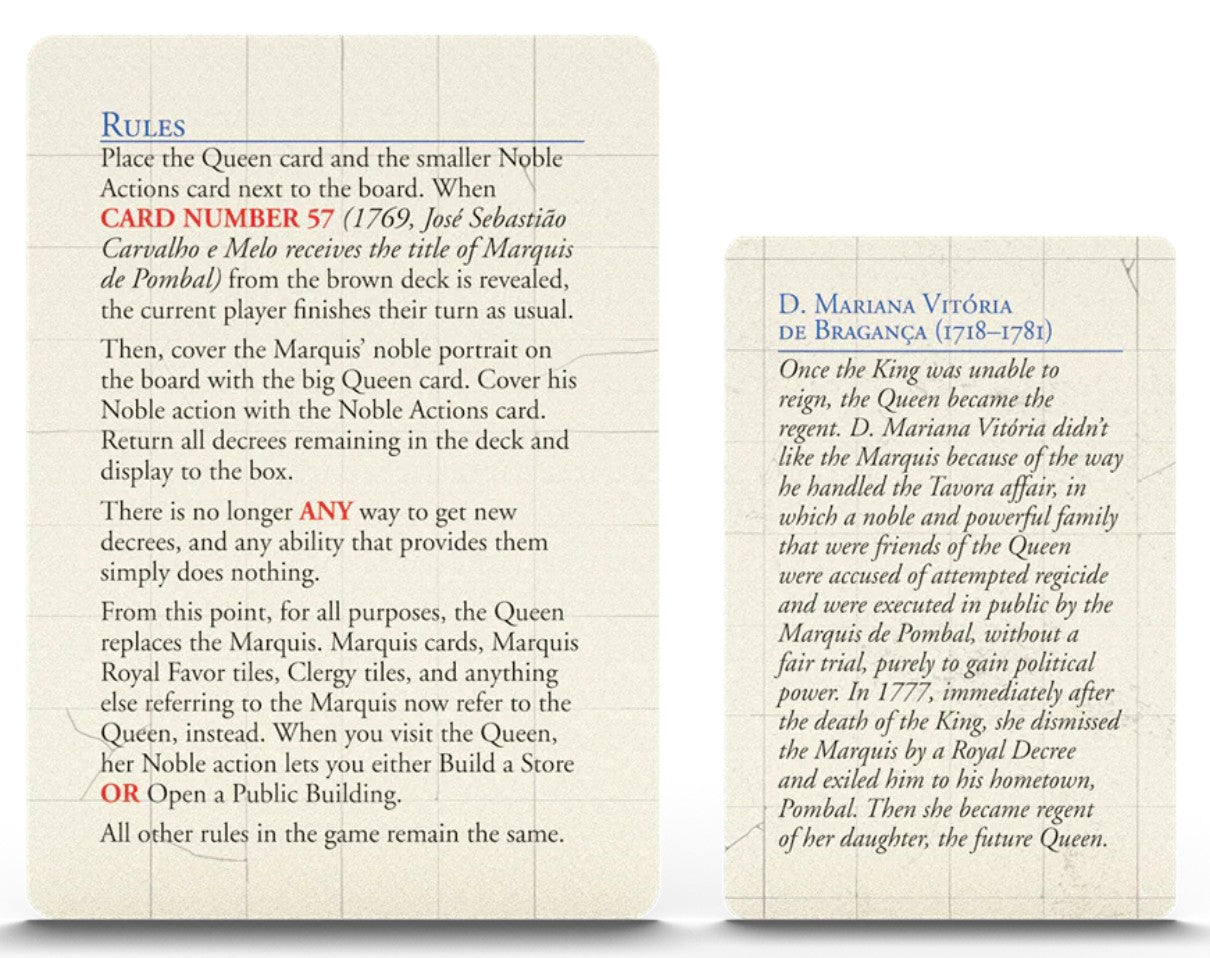 Rules
Place the Queen card and the smaller Noble
Actions card next to the board. When
CARD NUMBER 57 (1769, José Sebastião
Carvalho e Melo receives the title of Marquis
de Pombal) from the brown deck is revealed,
the current player finishes their turn as usual.
Then, cover the Marquis’ noble portrait on
the board with the big Queen card. Cover his
Noble action with the Noble Actions card.
Return all decrees remaining in the deck and
display to the box.
There is no longer ANY way to get new
decrees, and any ability that provides them
simply does nothing.
From this point, for all purposes, the Queen
replaces the Marquis. Marquis cards, Marquis
Royal Favor tiles, Clergy tiles, and anything
else referring to the Marquis now refer to the
Queen, instead. When you visit the Queen,
her Noble action lets you either Build a Store
OR Open a Public Building.
All other rules in the game remain the same.
D. Mariana Vitória
de Bragança (1718–1781)
Once the King was unable to
reign, the Queen became the
regent. D. Mariana Vitória didn’t
like the Marquis because of the way
he handled the Tavora affair, in
which a noble and powerful family
that were friends of the Queen
were accused of attempted regicide
and were executed in public by the
Marquis de Pombal, without a
fair trial, purely to gain political
power. In 1777, immediately after
the death of the King, she dismissed
the Marquis by a Royal Decree
and exiled him to his hometown,
Pombal. Then she became regent
of her daughter, the future Queen.